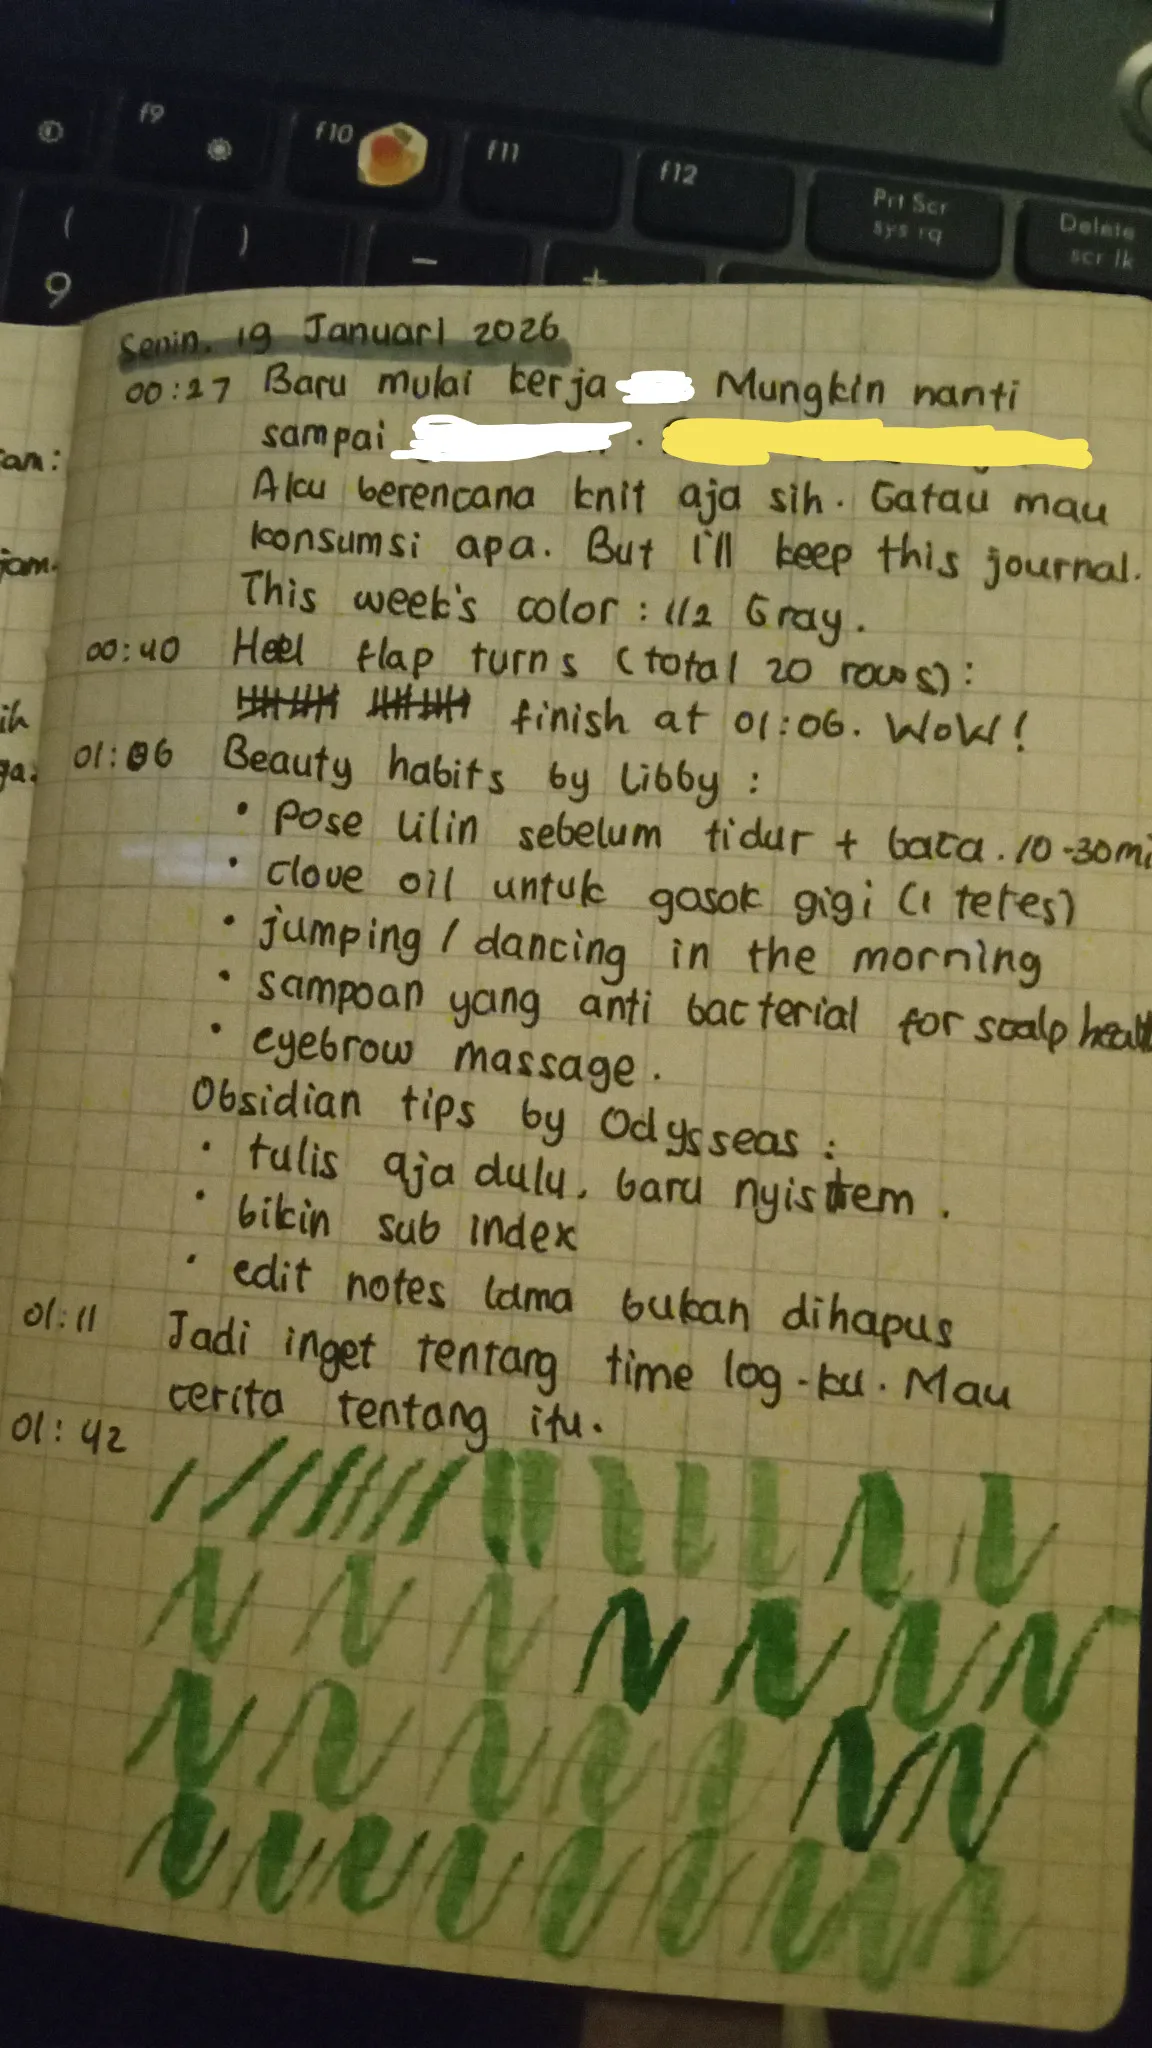 f9
f10
f11
f12
Prt Scr
sys rq
Delete
scr lk
(
9
)
-
+
Senin, 19 Januari 2026
00:27 Baru mulai kerja Mungkin nanti
sampai .
Aku berencana knit aja sih. Gatau mau
konsumsi apa. But I'll keep this journal.
This week's color : 112 Gray.
00:40 Heel flap turns (total 20 rows) :
finish at 01:06. WOW!
01:06 Beauty habits by Libby :
• pose lilin sebelum tidur + baca. 10-30mi
• clove oil untuk gosok gigi (1 tetes)
• jumping / dancing in the morning
• sampoan yang anti bacterial for scalp healt
• eyebrow massage.
Obsidian tips by Odysseas :
• tulis aja dulu, baru nyistem.
• bikin sub index
• edit notes lama bukan dihapus
01:11 Jadi inget tentang time log-ku. Mau
cerita tentang itu.
01:42
am:
jam.
ih
ga.